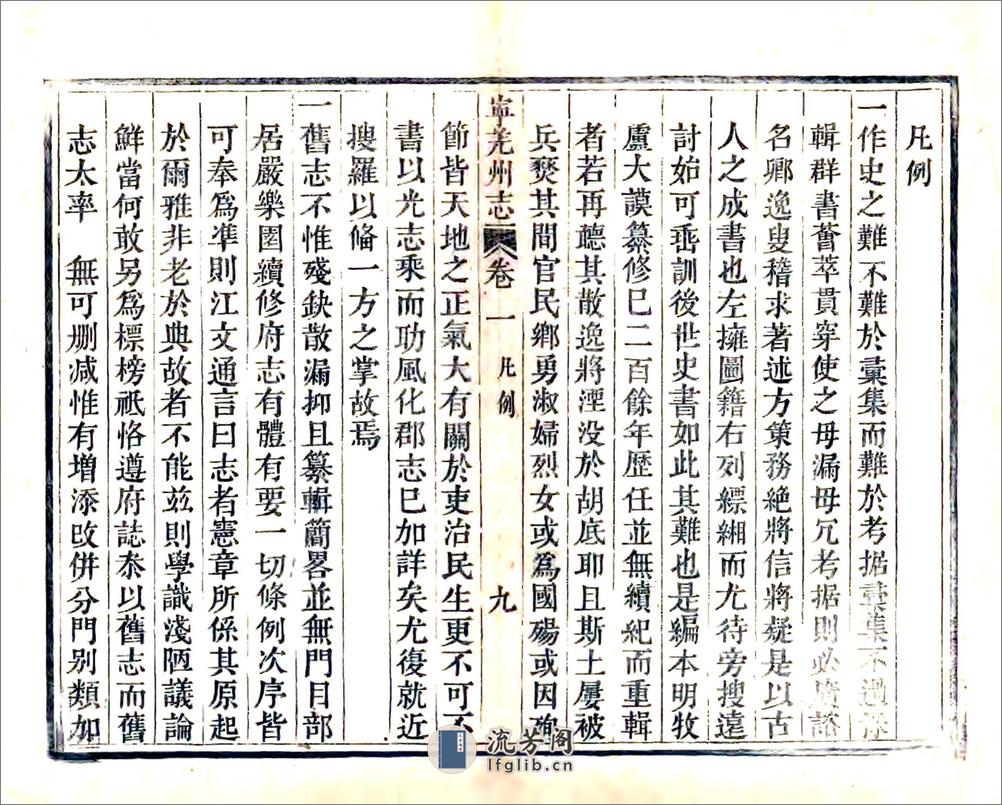 凡例
一作史之難不難於彙集而難於考据彙集不過
輯群書薈萃貫穿使之毋漏毋冗考据則必廣諮
名卿逸叟稽求著述方策務絶將信將疑是以古
人之成書也左擁圖籍右列縹緗而尤待旁搜遠
討始可垂訓後世史書如此其難也是編本明牧
盧大謨纂修已二百餘年歷任並無續紀而重輯
者若再聽其散逸將湮没於胡底耶且斯土屢被
兵燹其間官民鄉勇淑婦烈女或爲國殤或因殉
寧羌州志 卷一 凡例 九
節皆天地之正氣大有關於吏治民生更不可不
書以光志乘而功風化郡志已加詳矣尤復就近
搜羅以俻一方之掌故焉
一舊志不惟殘缺散漏抑且纂輯簡畧並無門目部
居嚴樂園續修府志有體有要一切條例次序皆
可奉爲凖則江文通言曰志者憲章所係其原起
於爾雅非老於典故者不能玆則學識淺陋議論
鮮當何敢另爲標榜祇恪遵府誌叅以舊志而舊
志太率 無可刪减惟有增添攺併分門别類加
流芳阁
lfglib.cn